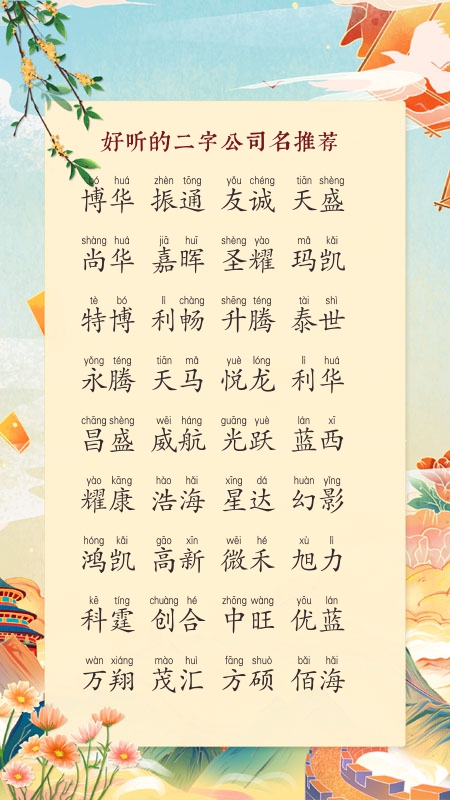 好听的二字公司名推荐
bó huá zhèn tōng yǒu chéng tiān shèng
博华 振通 友诚 天盛
shàng huá jiā huī shèng yào mǎ kǎi
尚华 嘉晖 圣耀 玛凯
tè bó lì chàng shēng téng tài shì
特博 利畅 升腾 泰世
yǒng téng tiān mǎ yuè lóng lì huá
永腾 天马 悦龙 利华
chāng shèng wēi háng guāng yuè lán xī
昌盛 威航 光跃 蓝西
yào kāng hào hǎi xīng dá huàn yǐng
耀康 浩海 星达 幻影
hóng kǎi gāo xīn wēi hé xù lì
鸿凯 高新 微禾 旭力
kē tíng chuàng hé zhōng wàng yōu lán
科霆 创合 中旺 优蓝
wàn xiáng mào huì fāng shuò bǎi hǎi
万翔 茂汇 方硕 佰海